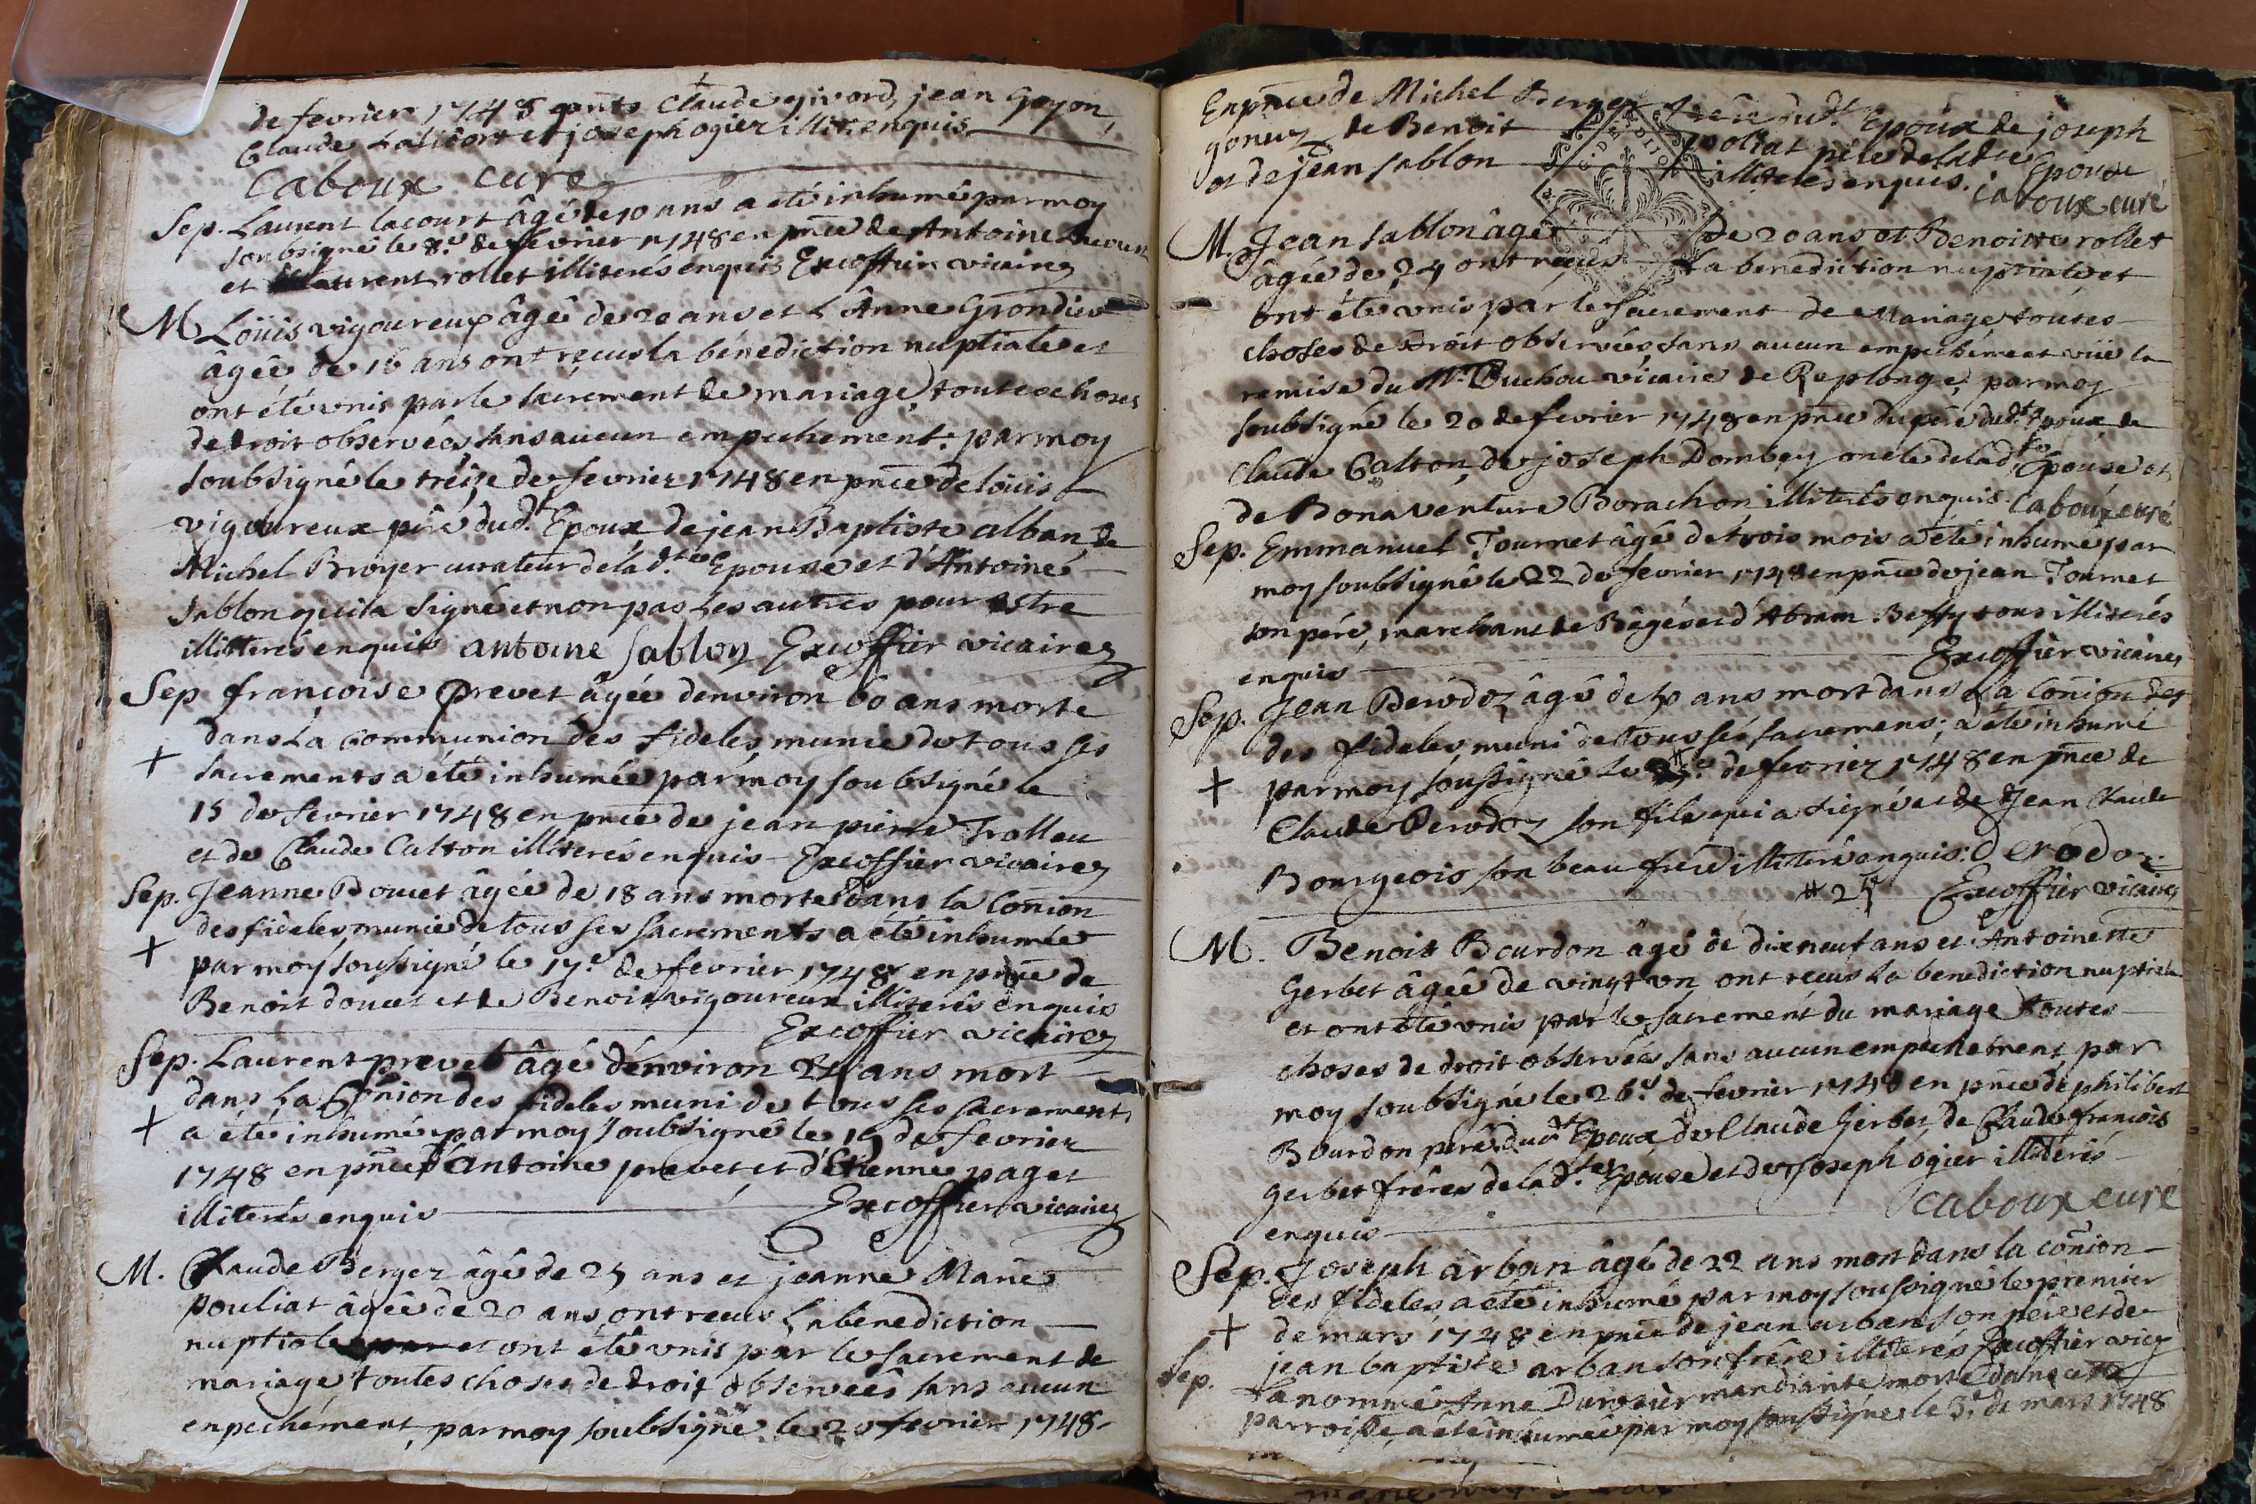 de fevrier 1748 pnts Claude givord, jean Goyon,
Claude et joseph ogier illit. enquis
Caboux curé
Sep. Laurent lacourt âgé de 10 ans a été inhumé par moy
soubsigné le 8.e de fevrier 1748 en pñce de Antoine Lacourt
et laurent rollet illiterés enquis Excoffier vicaire
M Loüis vigoureux âgé de 20 ans et L'Anne Grondier
âgée de 16 ans ont reçus la bénediction nuptiale et
ont été vnis par le sacrement de mariage, toutes choses
de droit observées, sans aucun empechement. par moy
soubsigné le treize de fevrier 1748 en pñce de loüis
vigoureux père dud.t Epoux de jean Baptiste alban, de
Michel Broyer curateur de lad.te Epouse et d'Antoine
Sablon qui a signé et non pas Les autres pour estre
illitterés enquis antoine Sablon Excoffier vicaire
Sep françoise prevet âgée d'environ 60 ans morte
dans La Communion des fideles munie de tous ses
+ sacrements a été inhumée par moy soubsigné le
15 de fevrier 1748 en pnce de jean pierre Trolleu
et de Claude Calton illiterés enquis Excoffier vicaire
Sep. Jeanne Doucet âgée de 18 ans morte dans la Coñion
des fideles munie de tous ses sacrements a été inhumée
+ par moy soussigné le 17.e de fevrier 1748 en pnce de
Benoit doucet et de Benoit vigoureux illiterés enquis
Excoffier vicaire
Sep. Laurent prevet âgé d'environ 24 ans mort
dans La Coñion des fideles muni de tous ses sacrements
+ a été inhumé par moy soubsigné le 19 de fevrier
1748 en pñce d'Antoine prevet, et d'Etienne paget
illiterés enquis Excoffier vicaire
M. Claude Berger âgé de 25 ans et jeanne Marie
pouliat âgée de 20 ans, ont reçus La benediction
nuptiale et ont été vnis par le sacrement de
mariage toutes choses de droit observées sans aucun
enpechément, par moy soubsigné le 20 fevrier 1748
En pñce de Michel Berger frere dud.t Epoux de joseph
gonuz de Benoit poliat père de ladte Epouse
et de jean sablon illiterés enquis. Caboux curé
M. Jean sablon âgé de 20 ans et Benoitte rollet
âgée de 24 ont reçus la benediction nuptiale et
ont été vnis par le sacrement de Mariage, toutes
choses de droit observées, sans aucun empechement vüe la
remise du Mr. Duchou vicaire de Replonge, par moy
soubsigné le 20 de fevrier 1748 en pnce du père dud.t Epoux de
Claude Calton, de joseph Dombey oncle de lad.te Epouse, et
de Bonaventure Borachon illiterés enquis. Caboux curé
Sep. Emmanuel Tournet âgé de trois mois a été inhumé par
moy soubsigné le 22 de fevrier 1748 en pñce de jean Tournet
son père, marchant de Bâgé et d'Abram Beffy tous illiterés
enquis Excoffier vicaire
Sep. Jean Perodoz âgé de 50 ans mort dans La Coñion des
des fideles, muni de tous ses sacremens, a été inhumé
+ par moy soussigné le # de fevrier 1748 en pñce de
Claude Perodoz son fils qui a signé et de Jean Claude
Bourgeois son beau frere illitteré enquis. Perodoz
# 24 Excoffier vicaire
M. Benoit Bourdon âgé de dixneuf ans et Antoinette
Gerbet âgée de vingt vn ont reçus La benediction nuptiale
et ont été vnis par le sacrement du mariage toutes
choses de droit observées sans aucun empechement, par
moy soubsigné le 26.e de fevrier 1748 en pñce de philibert
Bourdon père dud.t Epoux, de Claude Gerbet, de Claude françois
Gerbet frères de lad.te Epouse et de Joseph ogier illiterés
enquis Caboux curé
Sep. Joseph arban âgé de 22 ans mort dans la coñion
des fideles a été inhumé par moy soussigné le premier
+ de mars 1748 en pñce de jean arban son père et de
jean baptiste arban son frère illiterés Excoffier vic
Sep. La nommé Anne Durosier mandiante morte dans cette
parroisse, a été inhumée par moy soussigné le 3.e de mars 1748